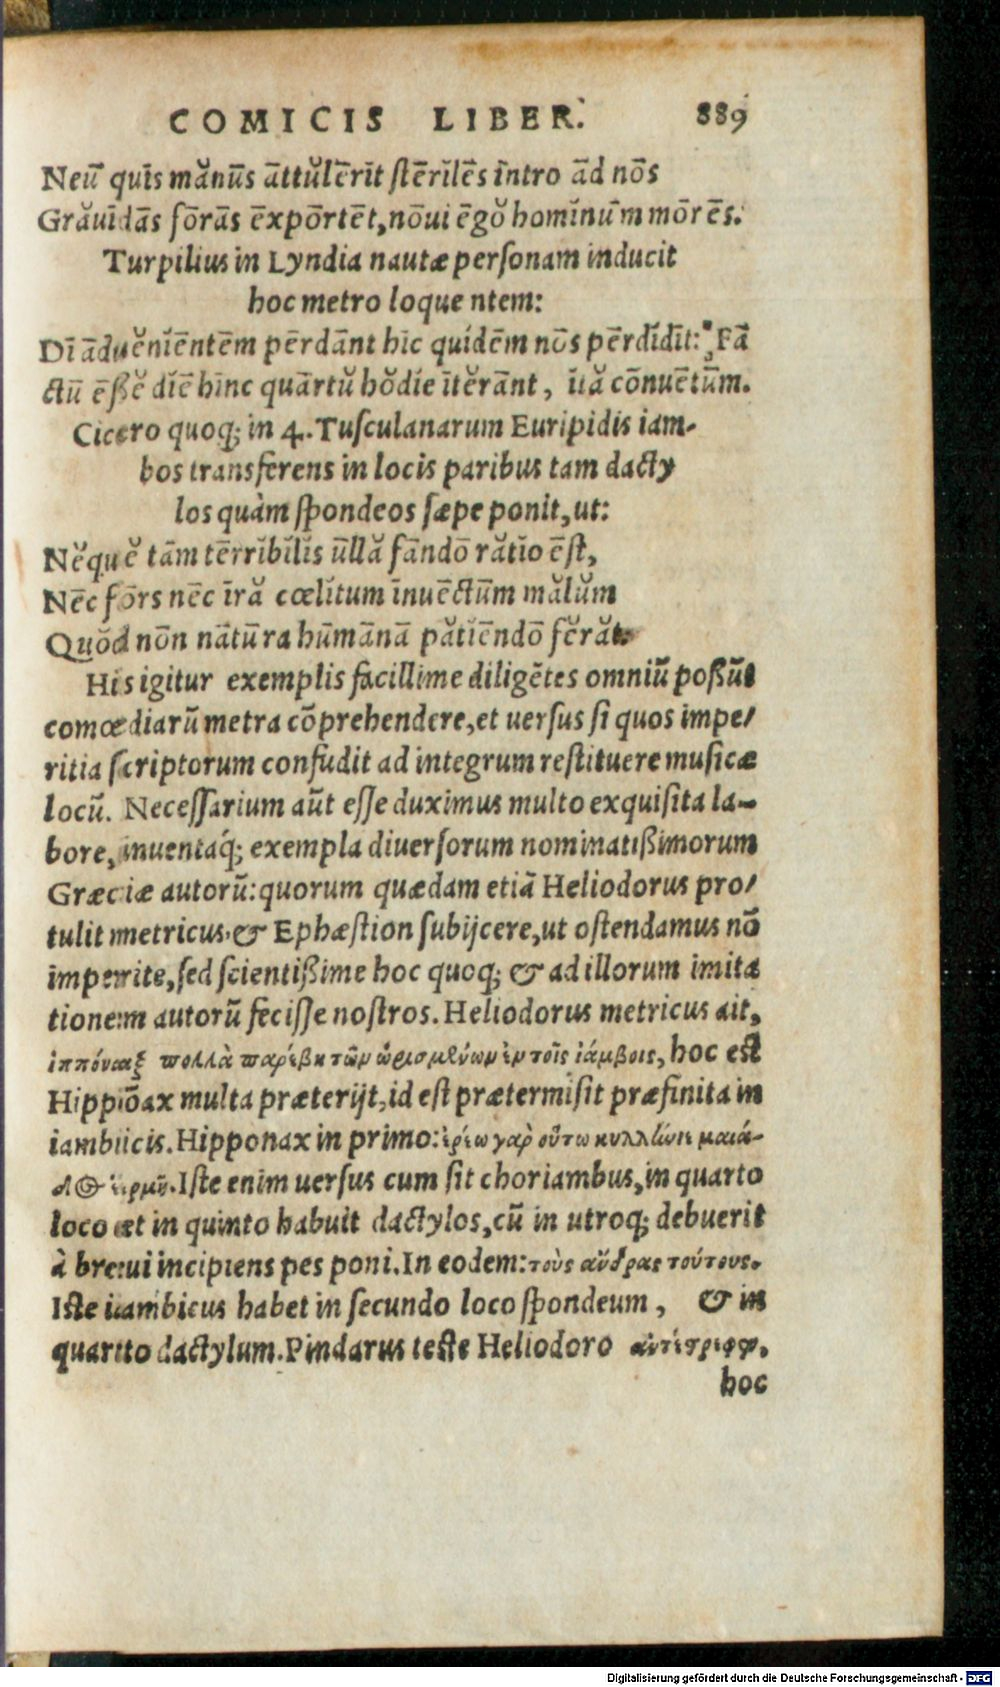 COMICIS LIBER. 889
Neū quīs mănūs āttŭlērīt stērĭlēs īntro ād nōs
Grăuīdās fōrās ēxpōrtēt, nōui ēgŏ homĭnūm mōrēs.
Turpilius in Lyndia nautæ personam inducit
hoc metro loque ntem:
Dī ādŭĕnĭēntēm pērdānt hīc quĭdēm nōs pērdĭdīt: Fā
ctū ēßĕ dīē hīnc quārtŭ hŏdĭe ĭtĕrānt, ĭtă cōnuēntūm.
Cicero quoq; in 4. Tusculanarum Euripidis iam-
bos transferens in locis paribus tam dacty
los quàm spondeos sæpe ponit, ut:
Nĕquĕ tām tērrĭbĭlĭs ūllă fāndō rătĭo ēst,
Nēc fōrs nēc īră cœlĭtum īnuēctūm mălŭm
Quŏd nōn nātūra hūmānā pătĭēndō fĕrăt.
His igitur exemplis facillime diligētes omniū poßūt
comœdiarū metra cōprehendere, et uersus si quos impe/
ritia scriptorum confudit ad integrum restituere musicæ
locū. Necessarium aūt esse duximus multo exquisita la-
bore, inuentaq́; exempla diuersorum nominatißimorum
Græciæ autorū: quorum quædam etiā Heliodorus pro/
tulit metricus & Ephæstion subijcere, ut ostendamus nō
imperite, sed scientißime hoc quoq; & ad illorum imita
tionem autorū fecisse nostros. Heliodorus metricus ait,
ἱππόναξ πολλὰ παρέβη τῶν ὡρισμένων ἐν τοῖς ἰάμβοις, hoc est
Hippōax multa præterijt, id est prætermisit præfinita in
iambicis. Hipponax in primo: ἐρέω γὰρ οὕτω κυλλήνιε μαιά-
δος ἑρμῆ. Iste enim uersus cum sit choriambus, in quarto
loco et in quinto habuit dactylos, cū in utroq; debuerit
à breui incipiens pes poni. In eodem: τοὺς ἄνδρας τούτους.
Iste iambicus habet in secundo loco spondeum, & in
quarto dactylum. Pindarus teste Heliodoro
hoc
Digitalisierung gefördert durch die Deutsche Forschungsgemeinschaft - DFG